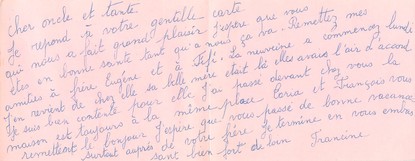 Cher oncle et tante.
Je repond à votre gentille carte
qui nous a fait grand plaisir j'espere que vous
etes en bonne sainte tant qu'a nous, ça va. Remettez mes
amitiés à frere Eugène et à Fifi. La neuvaine a commencez lundi
j'en revient de chez elle sa belle mère etait là elles avais l'air d'accord
Je suis bien contente pour elle. J'ai passé devant chez vous la
maison est toujours à la même place. Coria et François vous
remettent le bonjour J'espere que vous passe de bonne vacance
surtout auprès de votre frère. Je termine en vous embras
sant bien fort de loin Francine